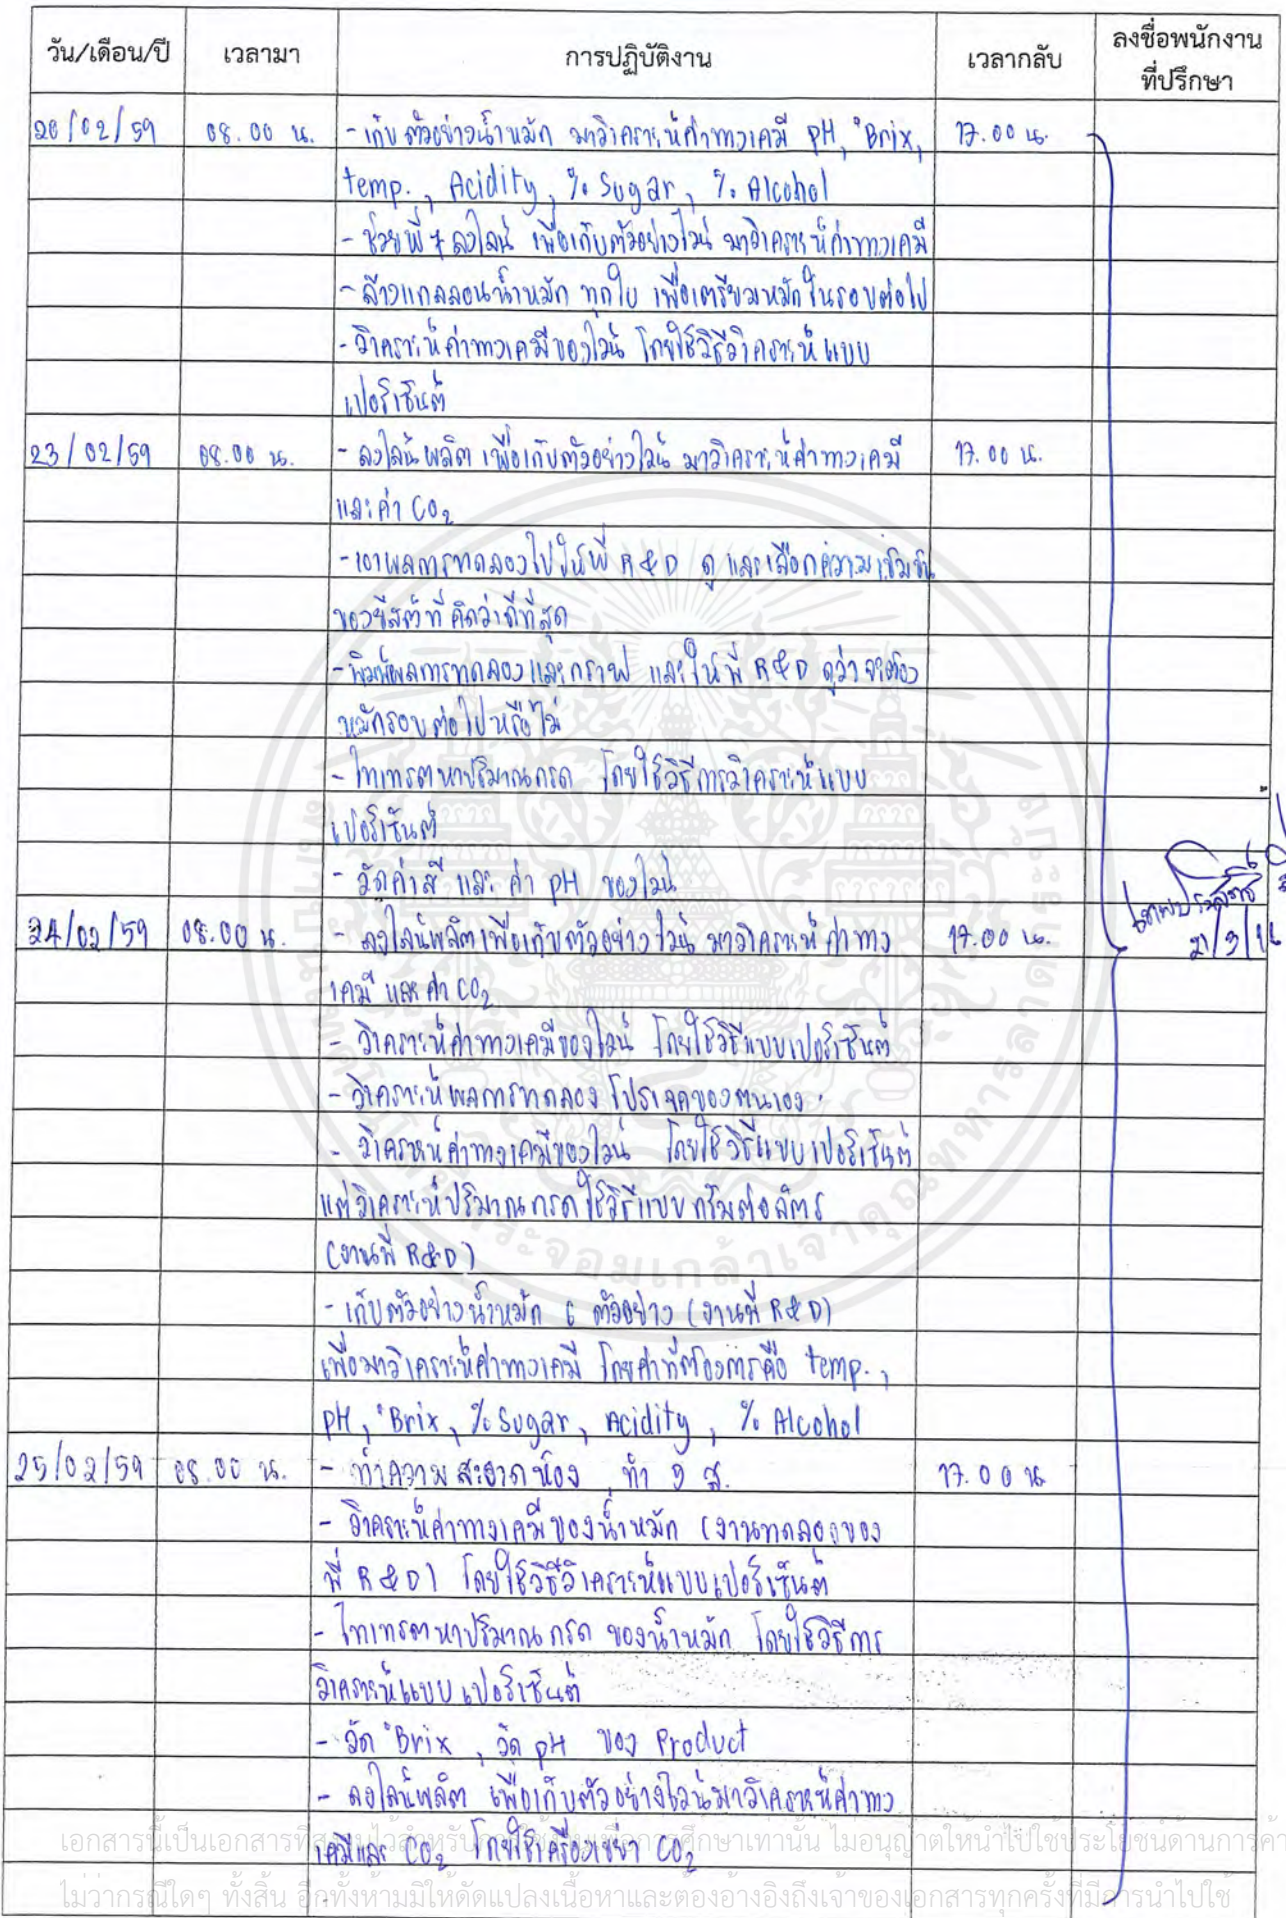 วัน/เดือน/ปี เวลามา การปฏิบัติงาน เวลากลับ ลงชื่อพนักงาน
ที่ปรึกษา
20/02/59 08.00 น. - เก็บตัวอย่างน้ำหมัก มาวิเคราะห์ค่าทางเคมี pH, °Brix, 17.00 น.
temp., Acidity, % Sugar, % Alcohol
- ช่วยพี่ ๆ ลงไลน์ เพื่อเก็บตัวอย่างไวน์ มาวิเคราะห์ค่าทางเคมี
- ล้างแกลลอนน้ำหมัก ทุกใบ เพื่อเตรียมหมักในรอบต่อไป
- วิเคราะห์ค่าทางเคมีของไวน์ โดยใช้วิธีวิเคราะห์แบบ
เปอร์เซ็นต์
23/02/59 08.00 น. - ลงไลน์ผลิต เพื่อเก็บตัวอย่างไวน์ มาวิเคราะห์ค่าทางเคมี 17.00 น.
และค่า CO₂
- เอาผลการทดลองไปให้พี่ R&D ดู และเลือกความเข้มข้น
ของยีสต์ที่คิดว่าดีที่สุด
- พิมพ์ผลการทดลองและกราฟ และให้พี่ R&D ดูว่า จะต้อง
หมักรอบต่อไปหรือไม่
- ไทเทรตหาปริมาณกรด โดยใช้วิธีการวิเคราะห์แบบ
เปอร์เซ็นต์
- วัดค่าสี และ ค่า pH ของไวน์
24/02/59 08.00 น. - ลงไลน์ผลิตเพื่อเก็บตัวอย่างไวน์ มาวิเคราะห์ค่าทาง 17.00 น.
เคมี และค่า CO₂
21/3/
- วิเคราะห์ค่าทางเคมีของไวน์ โดยใช้วิธีแบบเปอร์เซ็นต์
- วิเคราะห์ผลการทดลอง โปรเจคของตนเอง
- วิเคราะห์ค่าทางเคมีของไวน์ โดยใช้วิธีแบบเปอร์เซ็นต์
แต่วิเคราะห์ปริมาณกรดใช้วิธีแบบกรัมต่อลิตร
(งานพี่ R&D)
- เก็บตัวอย่างน้ำหมัก 6 ตัวอย่าง (งานพี่ R&D)
เพื่อมาวิเคราะห์ค่าทางเคมี โดยค่าที่ต้องการคือ temp.,
pH, °Brix, % Sugar, Acidity, % Alcohol
25/02/59 08.00 น. - ทำความสะอาดห้อง ทำ 5 ส. 17.00 น.
- วิเคราะห์ค่าทางเคมีของน้ำหมัก (งานทดลองของ
พี่ R&D) โดยใช้วิธีวิเคราะห์แบบเปอร์เซ็นต์
- ไทเทรตหาปริมาณกรด ของน้ำหมัก โดยใช้วิธีการ
วิเคราะห์แบบเปอร์เซ็นต์
- วัด °Brix, วัด pH ของ Product
- ลงไลน์ผลิต เพื่อเก็บตัวอย่างไวน์มาวิเคราะห์ค่าทาง
เคมีและ CO₂ โดยใช้เครื่องเขย่า CO₂
ไม่ว่ากรณีใดๆ ทั้งสิ้น อีกทั้งห้ามมิให้ดัดแปลงเนื้อหาและต้องอ้างอิงถึงเจ้าของเอกสารทุกครั้งที่มีการนำไปใช้